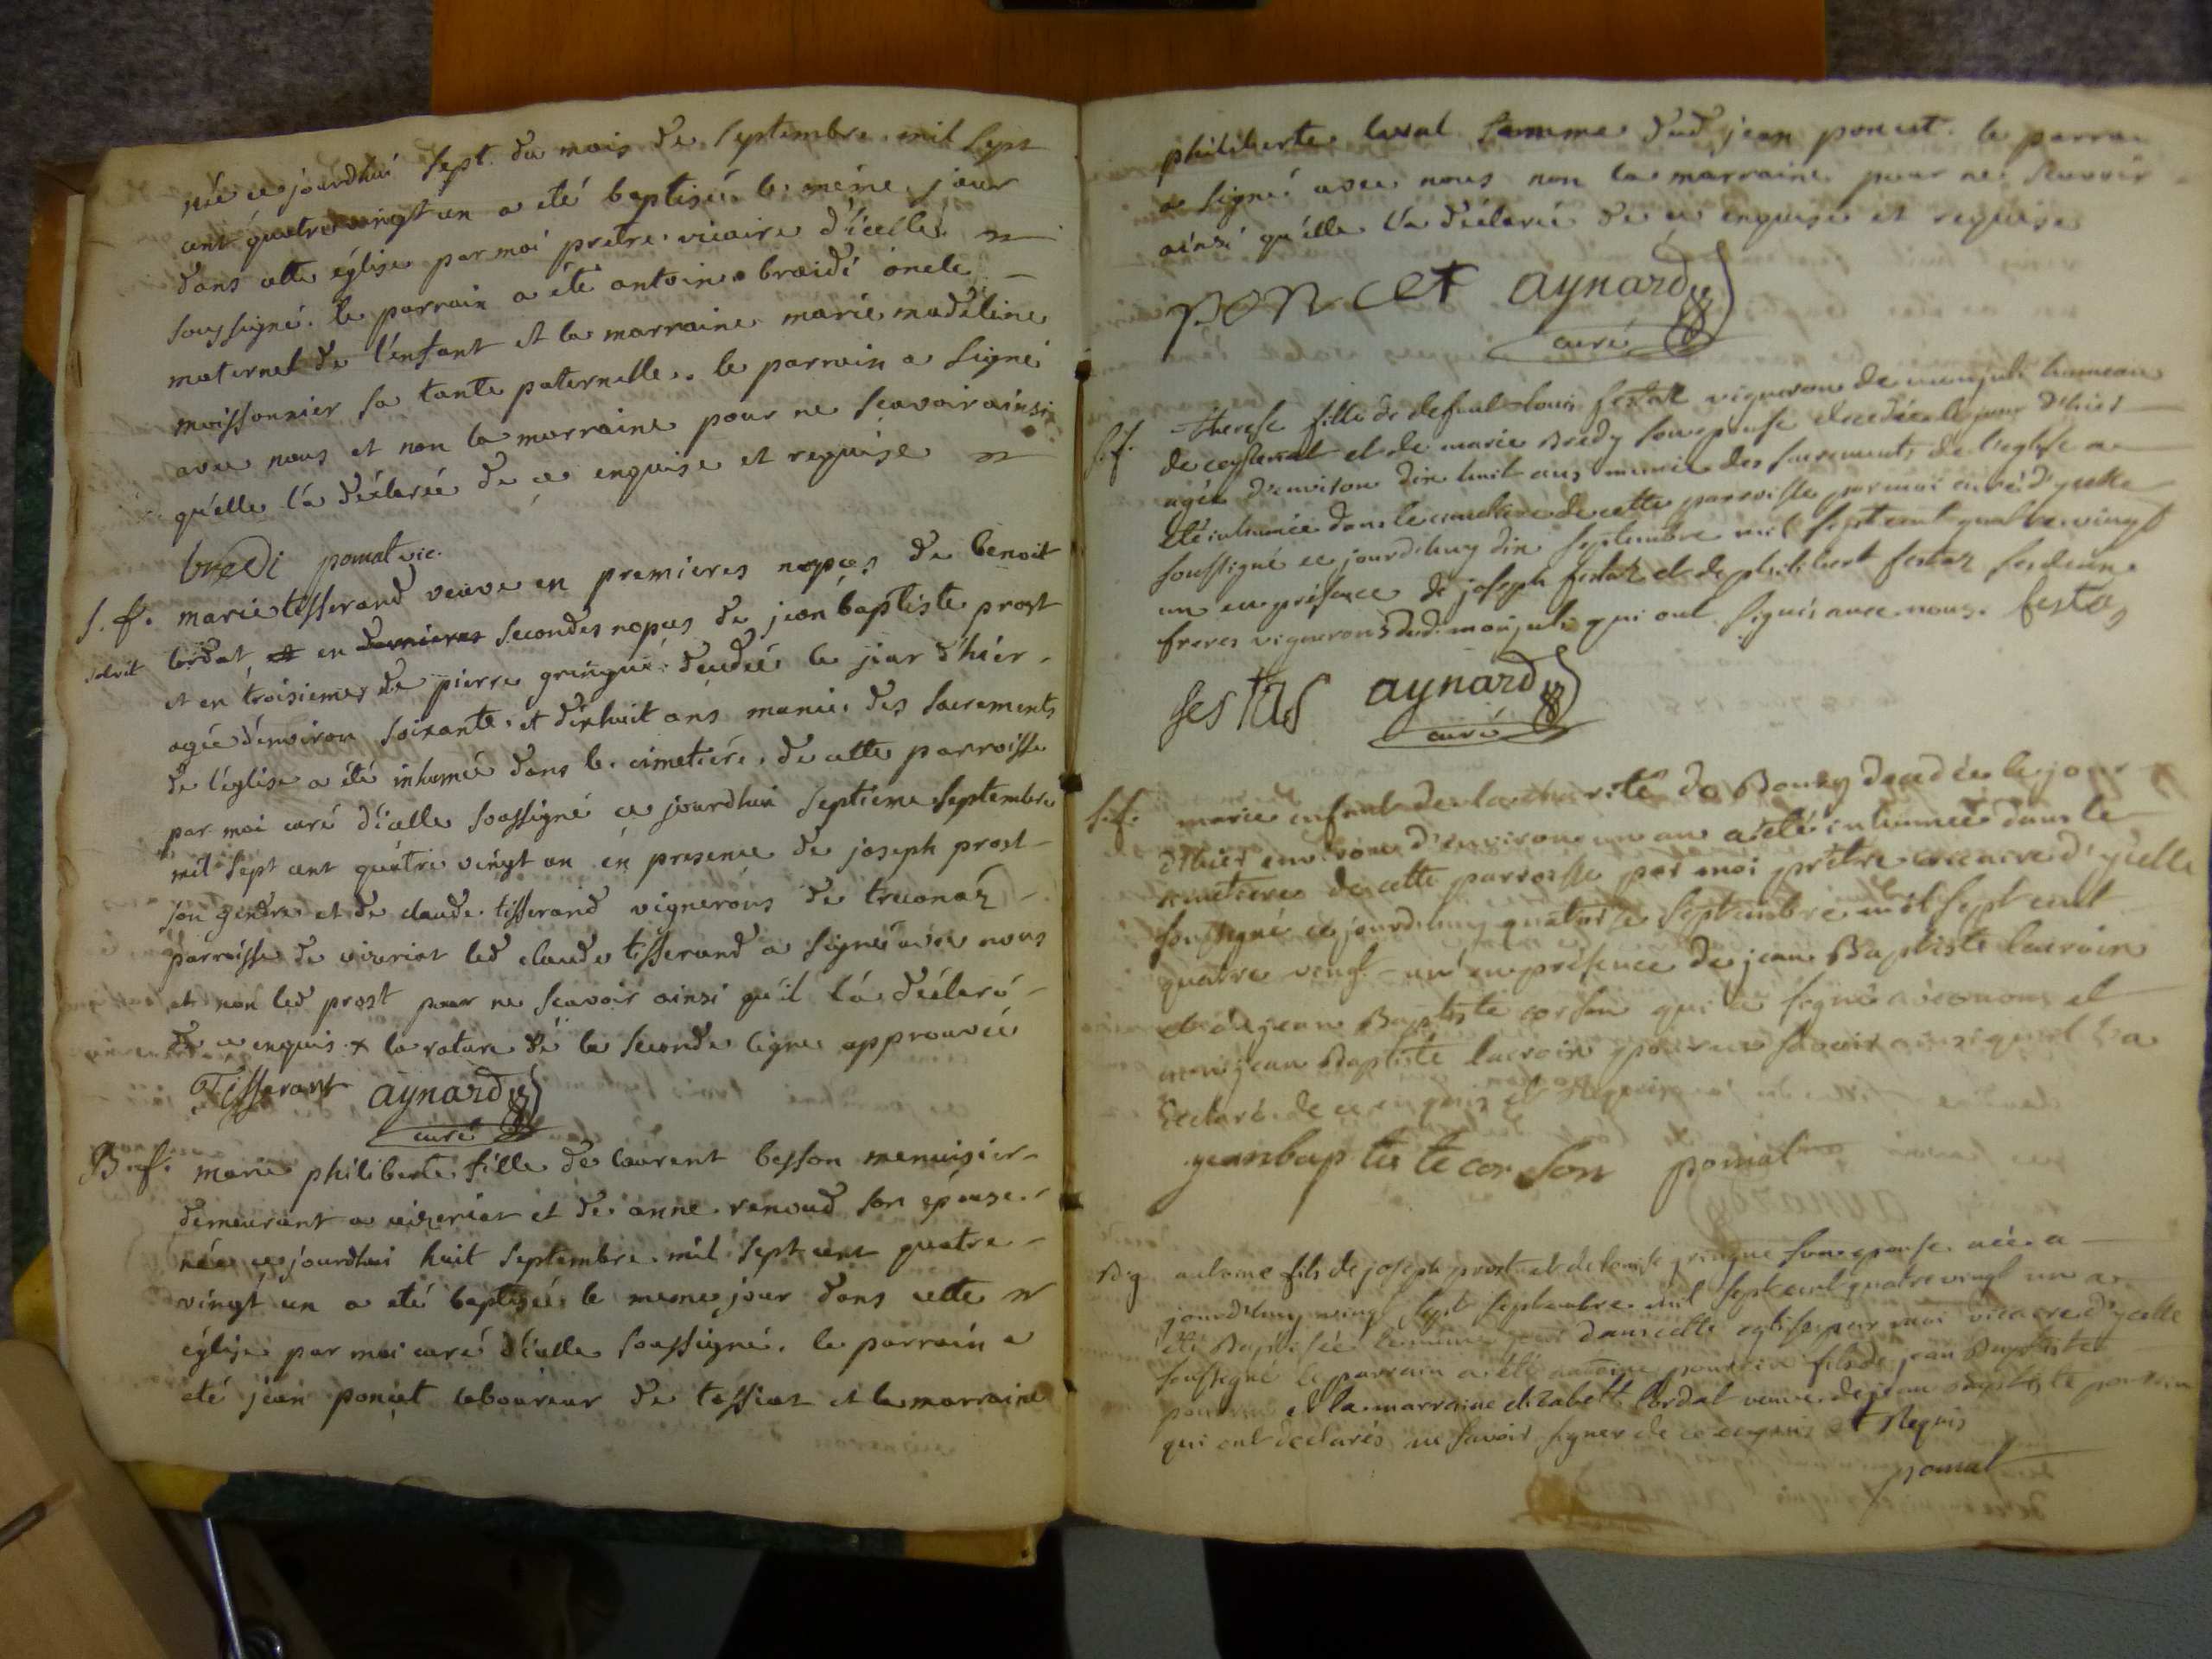 née ce jourdhui sept du mois de septembre mil sept
cent quatre vingt un a eté baptisée le même jour
dans cette église par moi pretre vicaire d'icelle
soussigné. le parrain a été antoine braidi oncle
maternel de l'enfant et la marraine marie madeleine
moissonnier sa tante paternelle. le parrain a signé
avec nous et non la marraine pour ne scavoir ainsi
qu'elle l'a déclarée de ce enquise et requise
bredi pomat vic.
s. f. marie tisserand veuve en premieres nopces de benoit
solvit lordat, et en dernieres secondes nopces de jean baptiste prost
et en troisiemes de pierre gringue décédée le jour d'hier
agée d'environ soixante et dixhuit ans munie des sacrements
de l'église a été inhumée dans le cimetiere de cette parroisse
par moi curé d'icelle soussigné ce jourdhui septieme septembre
mil sept cent quatre vingt un en presence de joseph prost
son gendre et de claude tisserand vignerons de treconaz
parroisse de led claude tisserand a signé avec nous
et non led prost pour ne scavoir ainsi qu'il l'a déclaré
de ce enquis x la rature de la seconde ligne approuvée
Tisserant aynard
curé
B. f. marie philiberte fille de laurent besson menuisier
demeurant a et de anne renoud son épouse
née ce jourdhui huit septembre mil sept cent quatre
vingt un a eté baptisée le meme jour dans cette
église par moi curé d'icelle soussigné. le parrain a
eté jean poncet laboureur de tessiat et la marraine
philiberte laval femme dud jean poncet. le parrain
a signé avec nous non la marraine pour ne scavoir
ainsi qu'elle l'a déclarée de ce enquise et requise
poncet aynard
curé
s. f. Therese fille de defunt louis festaz vigneron de monjuli hameau
de ceyseriat et de marie Bredy son epouse decedée le jour d'hier
agée d'environ dix huit ans munie des sacrements de l'eglise a
été inhumée dans le cimetiere de cette parroisse par moi curé d'ycelle
soussigné ce jourdhuy dix septembre mil sept cent quatre vingt
un en présence de joseph festaz et de philibert festaz ses deux
freres vignerons dud. monjuli qui ont signés avec nous. festaz
festas aynard
curé
s. f. marie enfant de la charité de Bourg decedée le jour
d'hier environ d'environ un an a été inhumée dans le
cimetiere de cette parroisse par moi prêtre vicaire d'ycelle
soussigné ce jourdhuy quatorze septembre mil sept cent
quatre vingt-un en présence de jean Baptiste lacroix
et de jean Baptiste corson qui a signé avec nous et
non jean Baptiste lacroix pour ne savoir ainsi qu'il l'a
declaré de ce enquis et Requis
jeanbaptis te cor son pomat
B. g. antoine fils de joseph prost et de louise gringue son epouse née a
jourdhuy vingt sept septembre mil sept cent quatre vingt un a
eté Baptisée le même jour dans cette eglise par moi vicaire d'ycelle
soussigné le parrain a été antoine fils de jean Baptiste
et la marraine elizabeth lordat veuve de jean Baptiste
qui ont declarés ne savoir signer de ce enquis et Requis
pomat